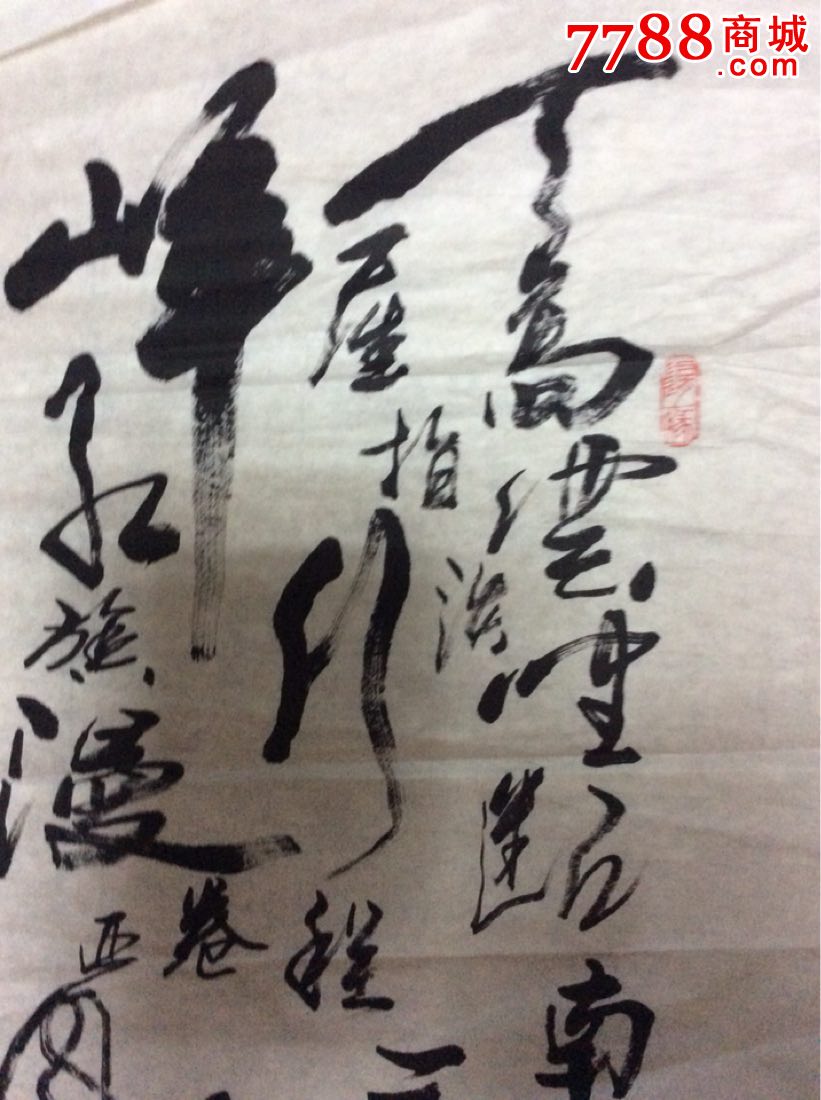 7788商城
.com
天高雲淡望断南
屈指行程
峰红旗漫卷西